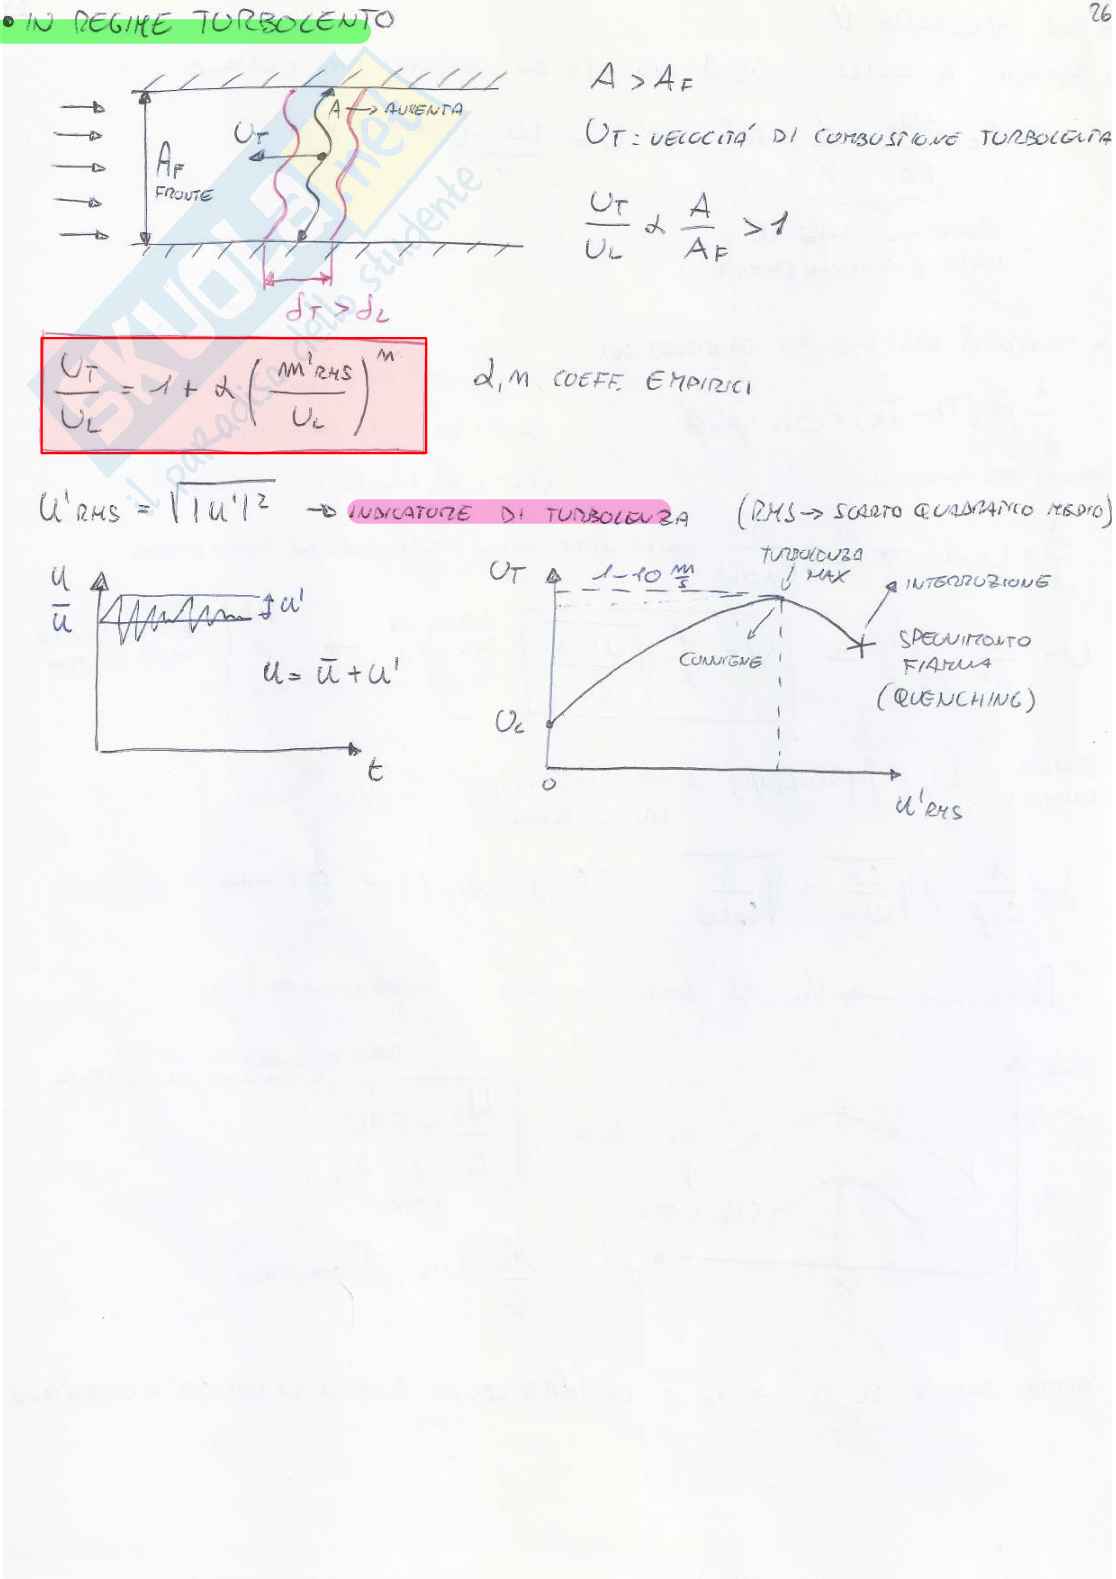 26
• IN REGIME TURBOLENTO
A > A_F
A → AUMENTA
U_T
A_F
FRONTE
U_T : VELOCITÁ DI COMBUSTIONE TURBOLENTA
U_T / U_L α A / A_F > 1
δ_T > δ_L
U_T / U_L = 1 + α ( m'RMS / U_L )^n
α, n COEFF. EMPIRICI
u'RMS = √|u'|² → INDICATORE DI TURBOLENZA (RMS → SCARTO QUADRATICO MEDIO)
u
ū
u'
u = ū + u'
t
U_T
1-10 m/s
TURBOLENZA
MAX
INTERRUZIONE
CONVIENE
SPEGNIMENTO
FIAMMA
(QUENCHING)
U_L
0
u'RMS
SKUOLA.net
il paradiso dello studente